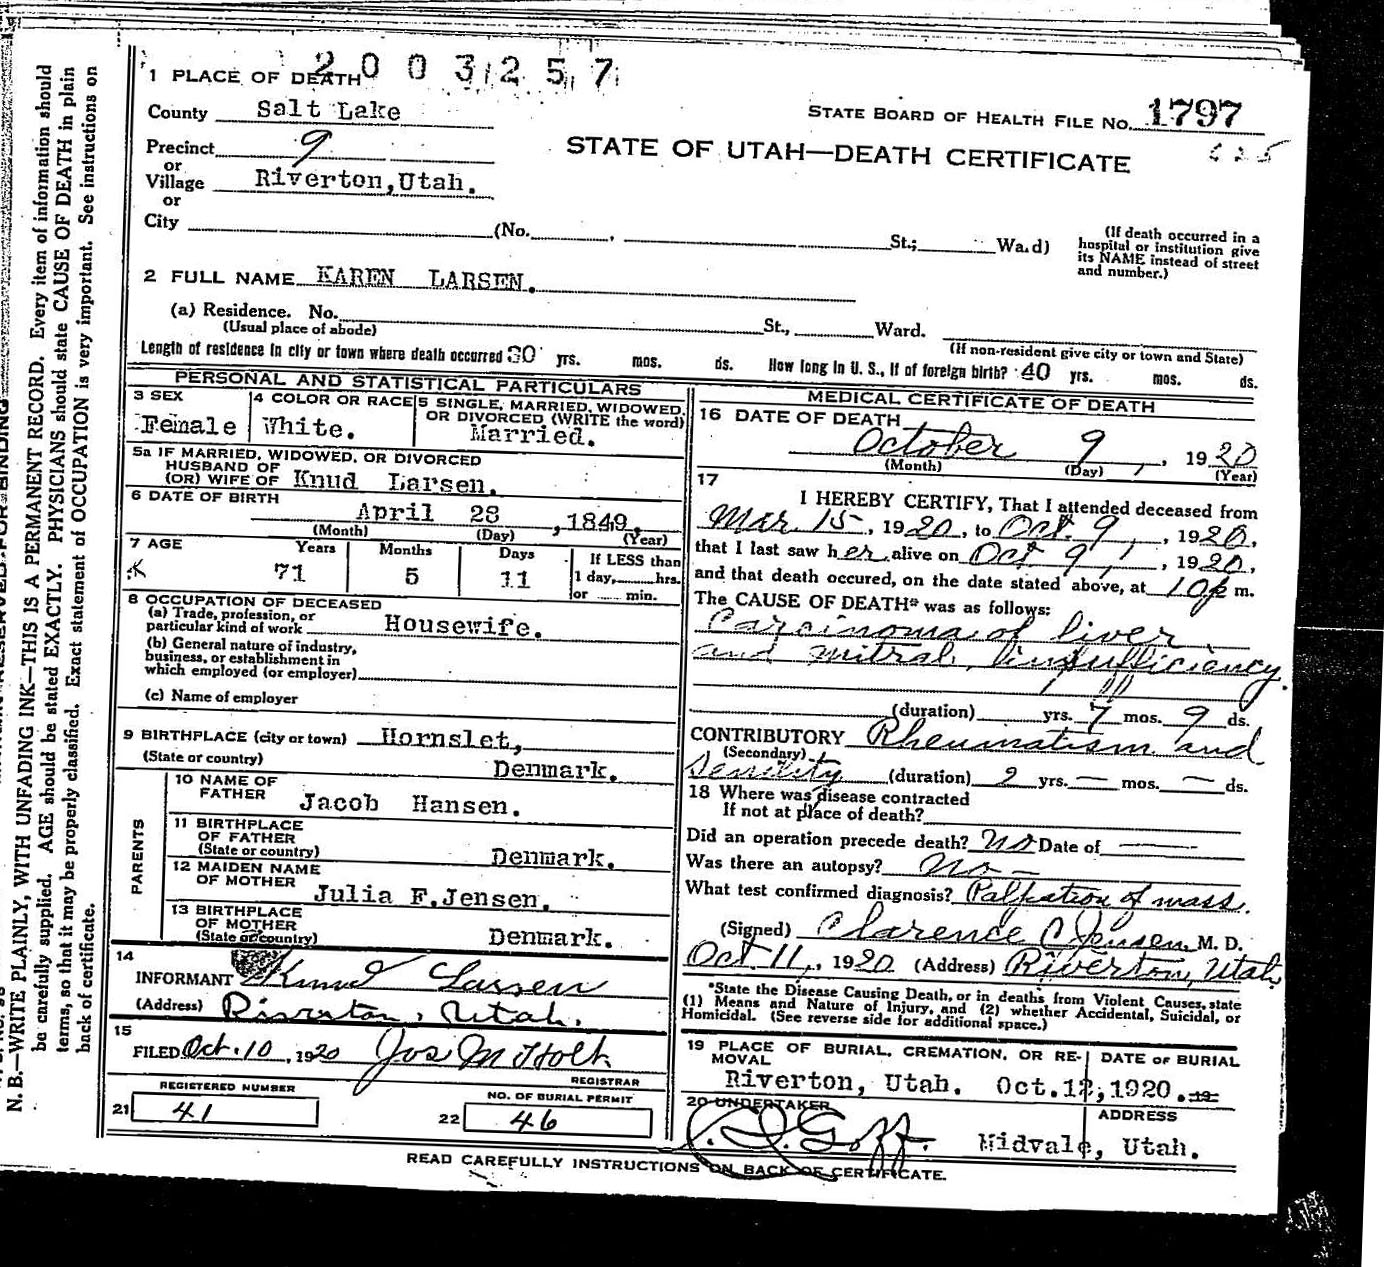 2003257
1 PLACE OF DEATH
County Salt Lake
STATE BOARD OF HEALTH FILE No. 1797
Precinct 9
STATE OF UTAH—DEATH CERTIFICATE
or
Village Riverton,Utah.
or
City (No. , St.; Ward)
(If death occurred in a
hospital or institution give
its NAME instead of street
and number.)
2 FULL NAME KAREN LARSEN.
(a) Residence. No. St., Ward.
(Usual place of abode)
(If non-resident give city or town and State)
Length of residence in city or town where death occurred 30 yrs. mos. ds. How long in U. S., if of foreign birth? 40 yrs. mos. ds.
PERSONAL AND STATISTICAL PARTICULARS
3 SEX
Female
4 COLOR OR RACE
White.
5 SINGLE, MARRIED, WIDOWED,
OR DIVORCED (WRITE the word)
Married.
5a IF MARRIED, WIDOWED, OR DIVORCED
HUSBAND OF
(OR) WIFE OF Knud Larsen.
6 DATE OF BIRTH
April 28 , 1849.
(Month) (Day) (Year)
7 AGE
Years Months Days
71 5 11
If LESS than
1 day, hrs.
or min.
8 OCCUPATION OF DECEASED
(a) Trade, profession, or
particular kind of work Housewife.
(b) General nature of industry,
business, or establishment in
which employed (or employer)
(c) Name of employer
9 BIRTHPLACE (city or town) Hornslet,
(State or country) Denmark.
PARENTS
10 NAME OF
FATHER Jacob Hansen.
11 BIRTHPLACE
OF FATHER
(State or country) Denmark.
12 MAIDEN NAME
OF MOTHER Julia F.Jensen.
13 BIRTHPLACE
OF MOTHER
(State or country) Denmark.
14
INFORMANT Knud Larsen
(Address) Riverton, Utah.
15
FILED Oct. 10, 1920 Jos M Holt
REGISTRAR
REGISTERED NUMBER
21 41
NO. OF BURIAL PERMIT
22 46
MEDICAL CERTIFICATE OF DEATH
16 DATE OF DEATH
October 9, 1920
(Month) (Day) (Year)
17
I HEREBY CERTIFY, That I attended deceased from
Mar. 15, 1920, to Oct. 9, 1920,
that I last saw her alive on Oct 9, 1920,
and that death occured, on the date stated above, at 10 p m.
The CAUSE OF DEATH* was as follows:
Carcinoma of liver
and mitral insufficiency.
(duration) yrs. 7 mos. 9 ds.
CONTRIBUTORY Rheumatism and
(Secondary)
Senility (duration) 2 yrs. — mos. — ds.
18 Where was disease contracted
If not at place of death?
Did an operation precede death? No Date of —
Was there an autopsy? No —
What test confirmed diagnosis? Palpation of mass.
(Signed) Clarence C Jensen, M. D.
Oct 11, 1920 (Address) Riverton, Utah
*State the Disease Causing Death, or in deaths from Violent Causes, state
(1) Means and Nature of Injury, and (2) whether Accidental, Suicidal, or
Homicidal. (See reverse side for additional space.)
19 PLACE OF BURIAL, CREMATION, OR RE-
MOVAL
DATE OF BURIAL
Riverton, Utah. Oct.12,1920. 19
20 UNDERTAKER
ADDRESS
Goff. Midvale, Utah.
READ CAREFULLY INSTRUCTIONS ON BACK OF CERTIFICATE.
N. B.—WRITE PLAINLY, WITH UNFADING INK—THIS IS A PERMANENT RECORD. Every item of information should
be carefully supplied. AGE should be stated EXACTLY. PHYSICIANS should state CAUSE OF DEATH in plain
terms, so that it may be properly classified. Exact statement of OCCUPATION is very important. See instructions on
back of certificate.